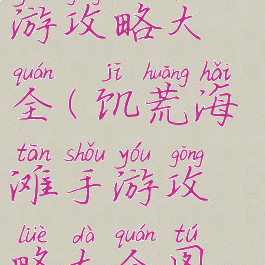 游攻略大
quán jī huāng hǎi
全(饥荒海
tān shǒu yóu gōng
滩手游攻
lüè dà quán tú
略大全图